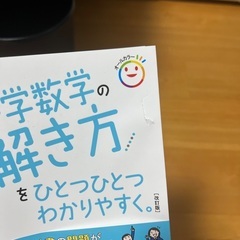 オールカラー!!
学数学の
解き方
を
ひとつひとつ
わかりやすく。
[改訂版]